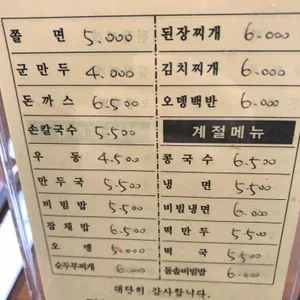 쫄면 5.000
군만두 4.000
돈까스 6.500
손칼국수 5.500
우동 4.500
만두국 5.500
비빔밥 5.500
잡채밥 6.500
오뎅 5.000
순두부찌개 6.000
된장찌개 6.000
김치찌개 6.000
오뎅백반 6.000
계절메뉴
콩국수 6.500
냉면 5.500
비빔냉면 6.000
떡만두 5.500
떡국 5.500
돌솥비빔밥 6.000
대단히 감사합니다.